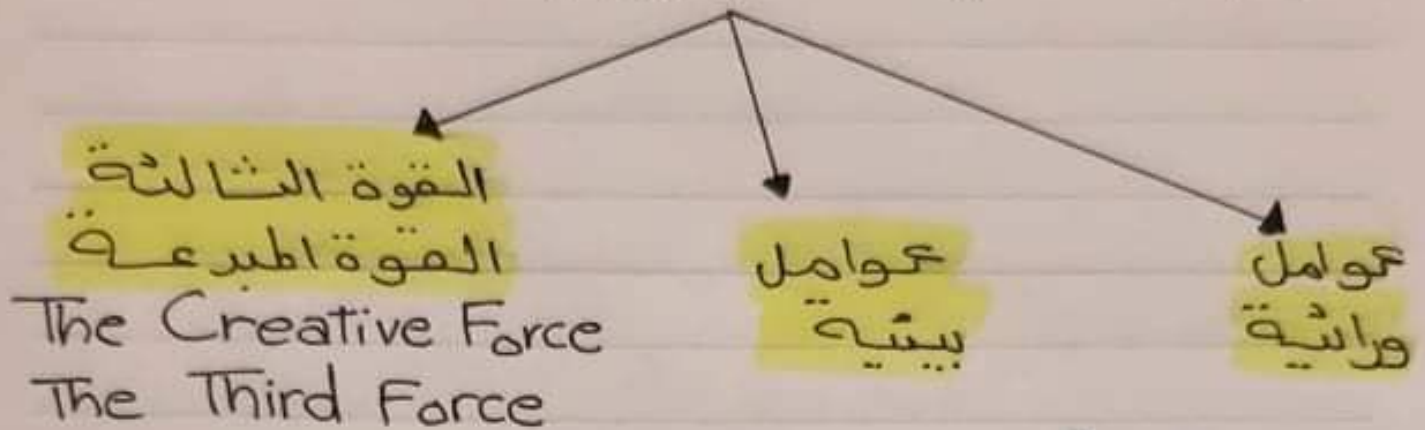 عوامل
وراثية
عوامل
بيئية
القوة الثالثة
القوة المبدعة
The Creative Force
The Third Force